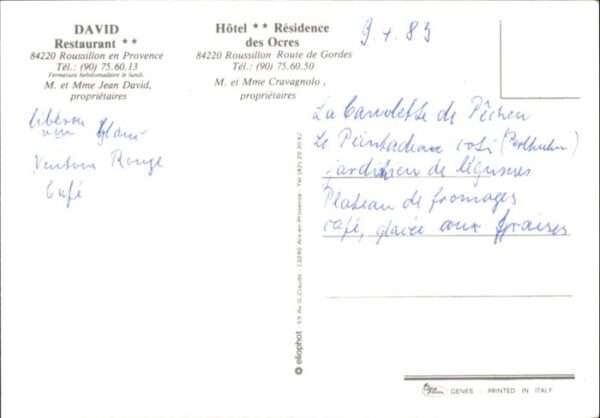 DAVID
Restaurant **
84220 Roussillon en Provence
Tél.: (90) 75.60.13
Fermeture hebdomadaire le lundi.
M. et Mme Jean David,
propriétaires
Hôtel ** Résidence
des Ocres
84220 Roussillon Route de Gordes
Tél.: (90) 75.60.50
M. et Mme Cravagnolo,
propriétaires
Blanc
Ventoux Rouge
Café
La de
Le Pintadeau roti (Perlhuhn)
de légumes
Plateau de fromages
café, glacée aux fraises
eliophot
Aix-en-Provence
GENES - PRINTED IN ITALY